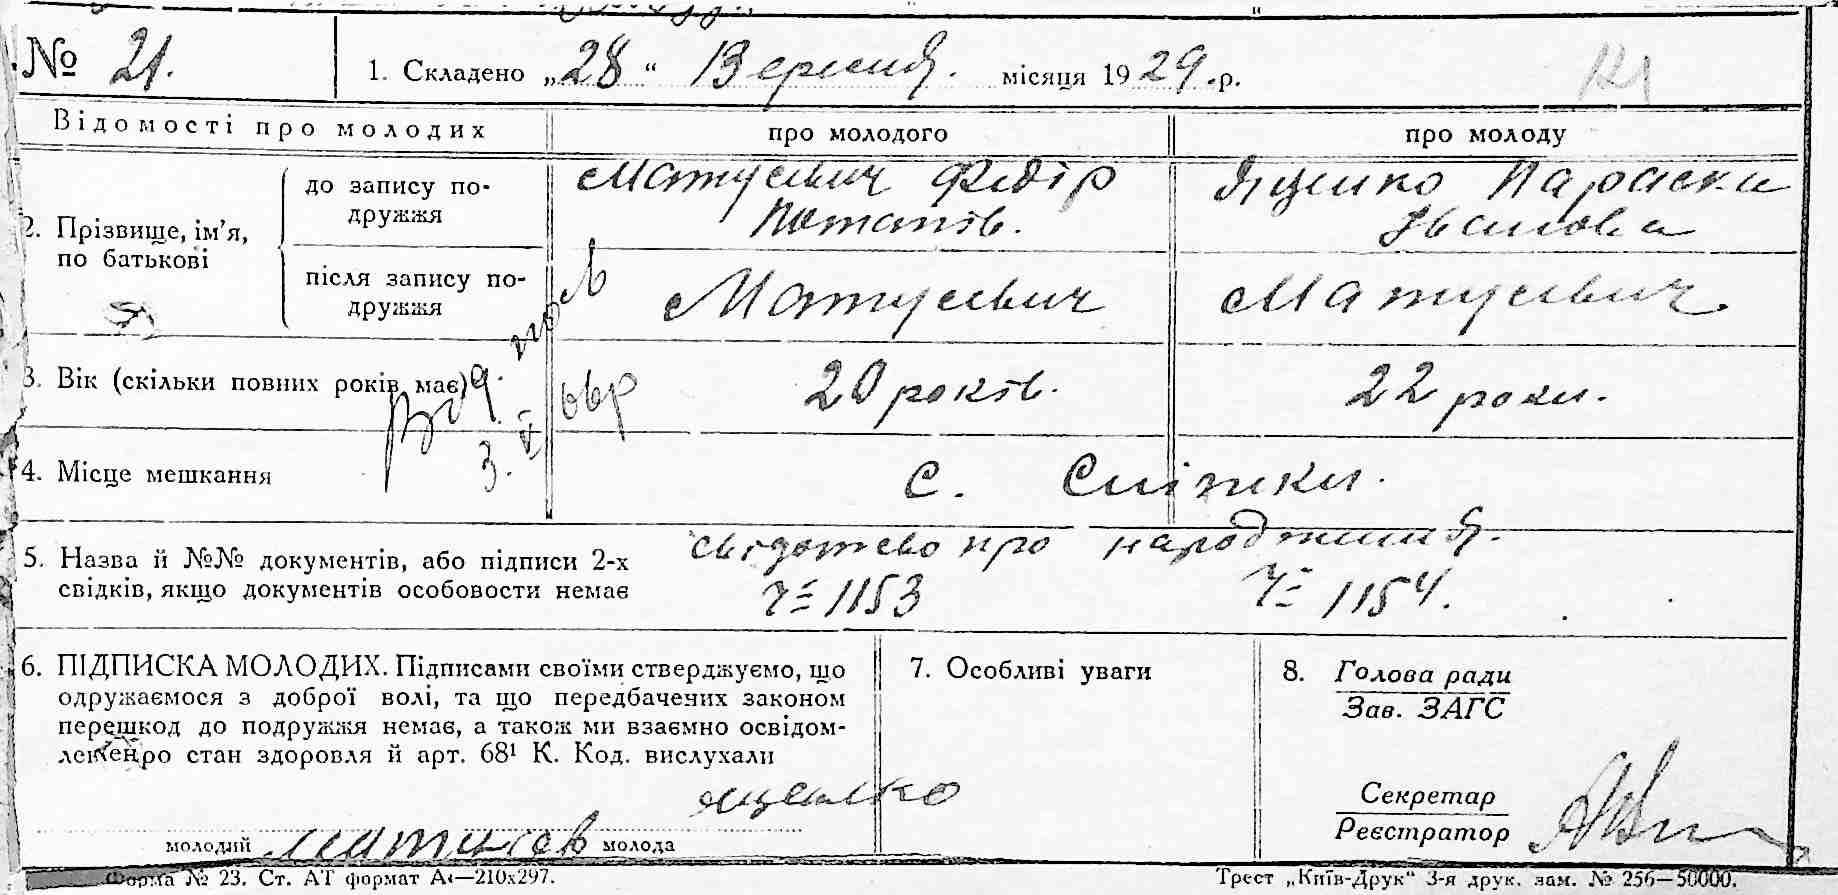 № 21.
1. Складено „28“ Вересня. місяця 1929.р.
Відомості про молодих
про молодого
про молоду
2. Прізвище, ім’я,
по батькові
до запису по-
дружжя
Матусевич Федір
Потапів.
Яценко Параска
Іванова
після запису по-
дружжя
Матусевич
Матусевич
3. Вік (скільки повних років має)
20 років.
22 роки.
4. Місце мешкання
с.
5. Назва й №№ документів, або підписи 2-х
свідків, якщо документів особовости немає
свідотство про народження.
1153
1154.
6. ПІДПИСКА МОЛОДИХ. Підписами своїми стверджуємо, що
одружаємося з доброї волі, та що передбачених законом
перешкод до подружжя немає, а також ми взаємно освідом-
лені про стан здоровля й арт. 68¹ К. Код. вислухали
яценко
молодий матусев молода
7. Особливі уваги
8. Голова ради
Зав. ЗАГС
Секретар
Реєстратор
Форма № 23. Ст. АТ формат А4—210x297.
Трест „Київ-Друк“ 3-я друк. зам. № 256—50000.